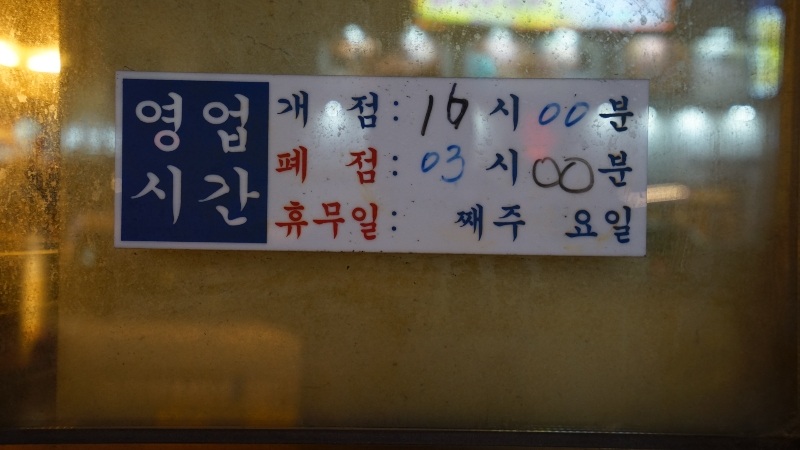 영업
시간
개 점: 16 시 00 분
폐 점: 03 시 00 분
휴무일: 째주 요일